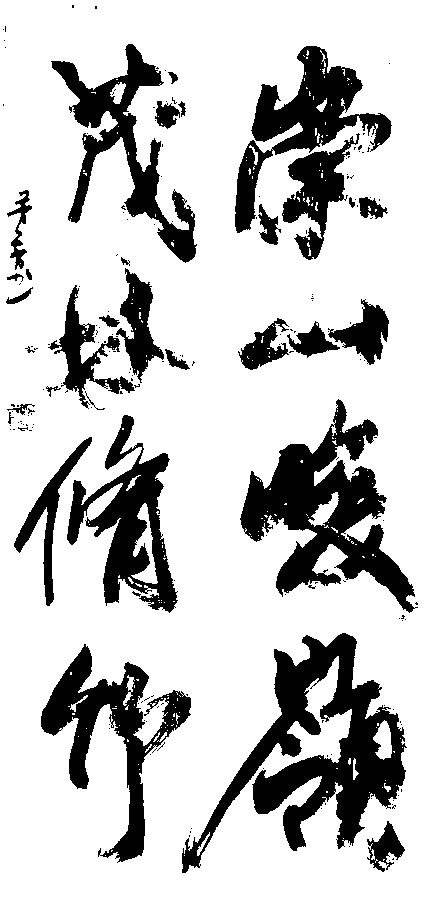 崇山峻嶺
茂林脩竹